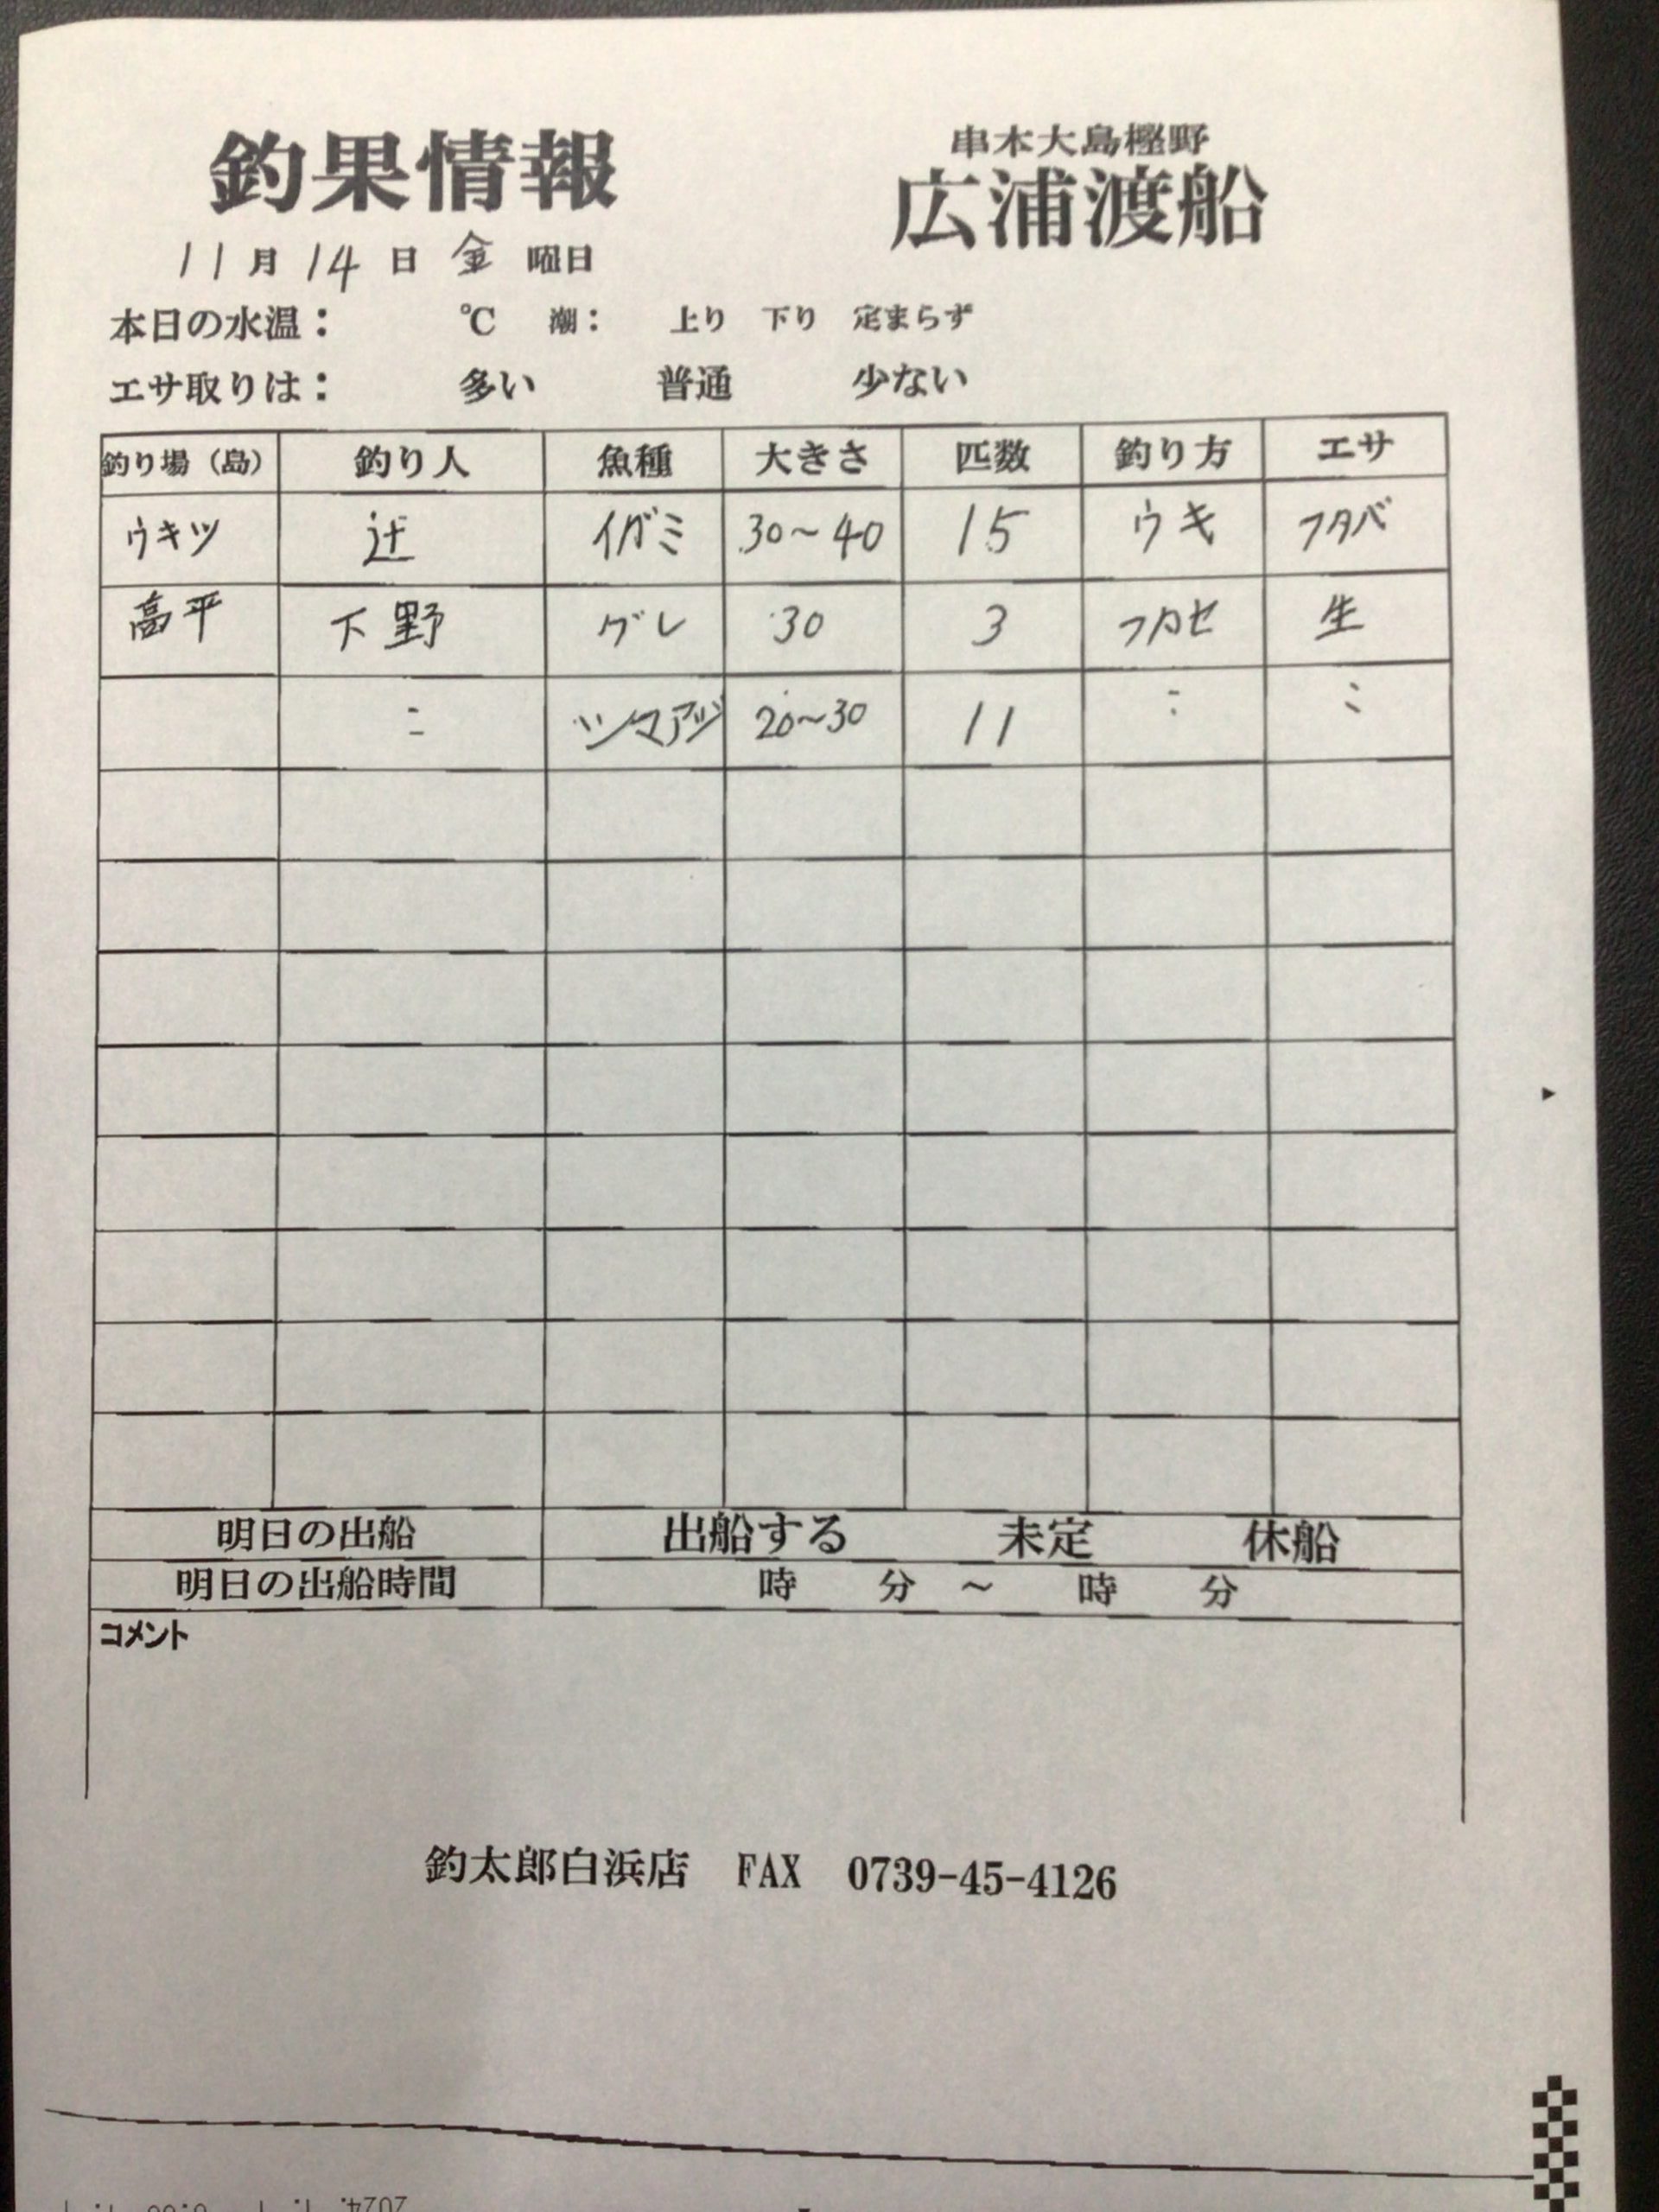 釣果情報
串本大島樫野
広浦渡船
11月14日 金 曜日
本日の水温： ℃ 潮： 上り 下り 定まらず
エサ取りは： 多い 普通 少ない
釣り場（島） 釣り人 魚種 大きさ 匹数 釣り方 エサ
ウキツ 辻 イガミ 30～40 15 ウキ フタバ
高平 下野 グレ 30 3 フカセ 生
〃 シマアジ 20～30 11 〃 〃
明日の出船 出船する 未定 休船
明日の出船時間 時 分 ～ 時 分
コメント
釣太郎白浜店 FAX 0739-45-4126